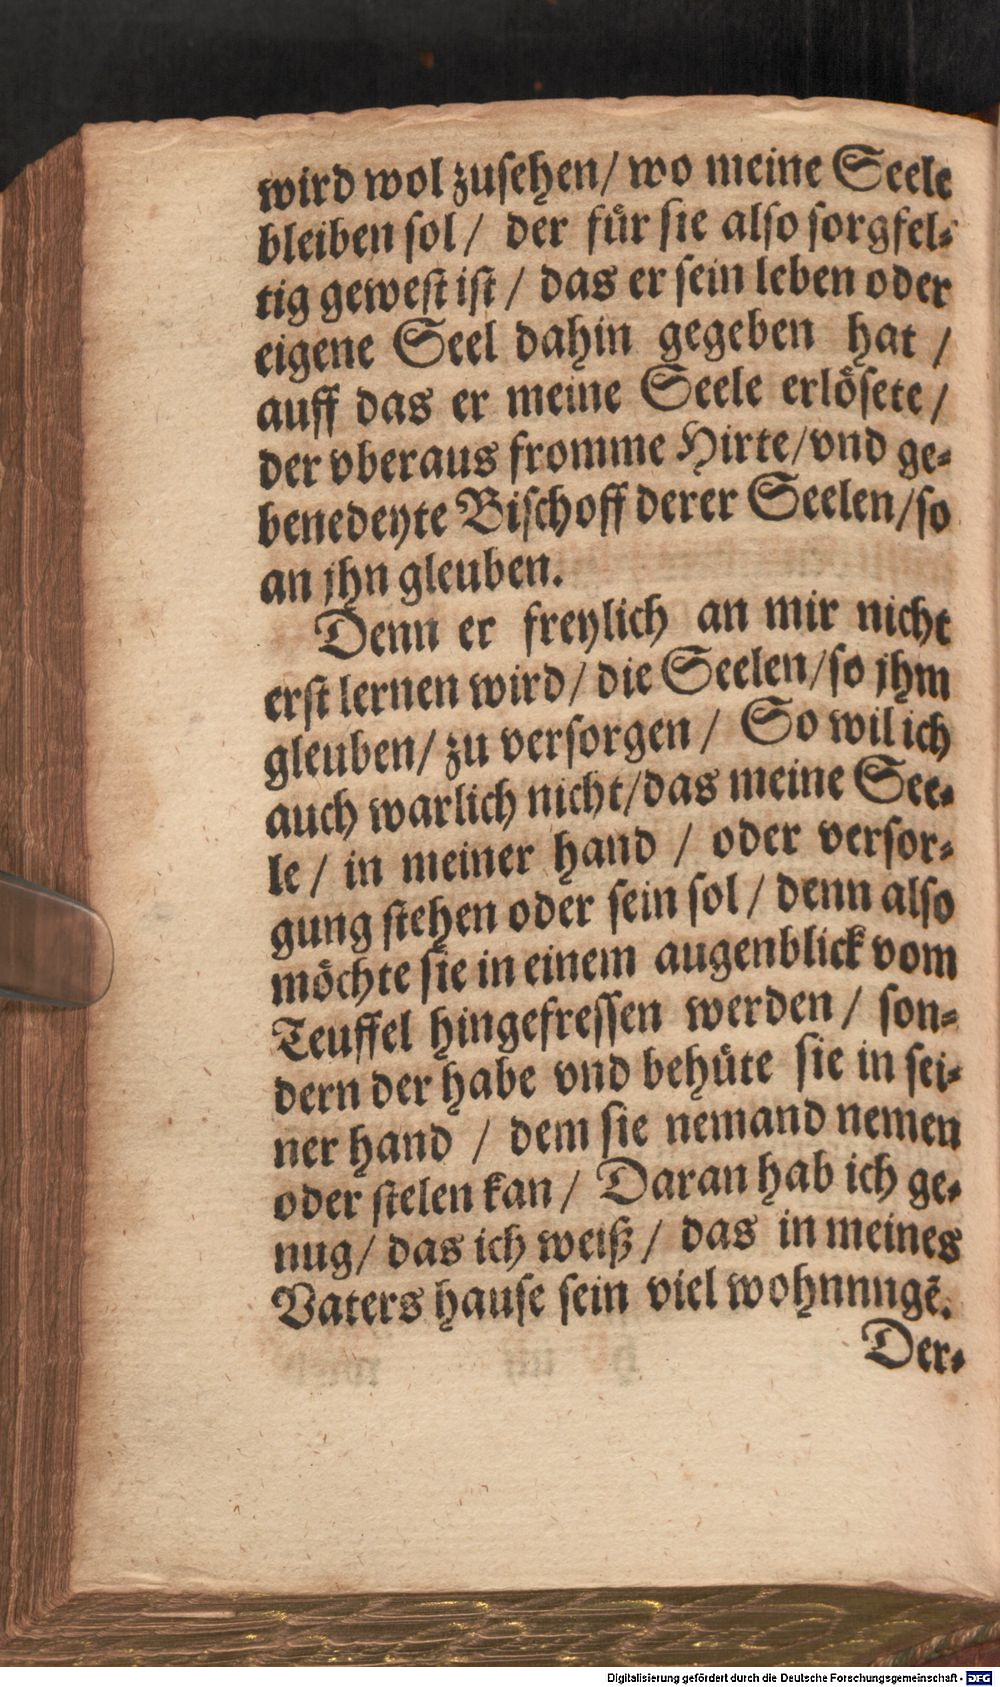 wird wol zusehen/ wo meine Seele
bleiben sol/ der fuͤr sie also sorgfel-
tig gewest ist/ das er sein leben oder
eigene Seel dahin gegeben hat/
auff das er meine Seele erloͤsete/
der vberaus fromme Hirte/vnd ge-
benedeyte Bischoff derer Seelen/so
an jhn gleuben.
Denn er freylich an mir nicht
erst lernen wird/ die Seelen/so jhm
gleuben/ zu versorgen/ So wil ich
auch warlich nicht/das meine See-
le/ in meiner hand/ oder versor-
gung stehen oder sein sol/ denn also
moͤchte sie in einem augenblick vom
Teuffel hingefressen werden/ son-
dern der habe vnd behuͤte sie in sei-
ner hand/ dem sie nemand nemen
oder stelen kan/ Daran hab ich ge-
nug/ das ich weiß/ das in meines
Vaters hause sein viel wohnnngē.
Der-
Digitalisierung gefördert durch die Deutsche Forschungsgemeinschaft - DFG